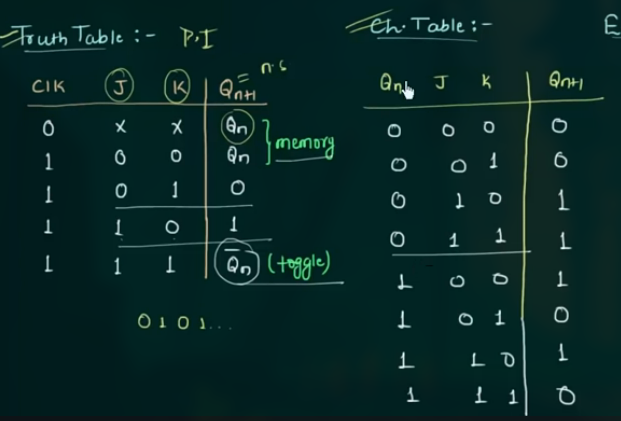 Truth Table :- P.I
n.s
CLK J K Qn+1
0 x x Qn
1 0 0 Qn
] memory
1 0 1 0
1 1 0 1
1 1 1 Q̅n (toggle)
0 1 0 1...
Ch. Table :-
Qn J K Qn+1
0 0 0 0
0 0 1 0
0 1 0 1
0 1 1 1
1 0 0 1
1 0 1 0
1 1 0 1
1 1 1 0
E